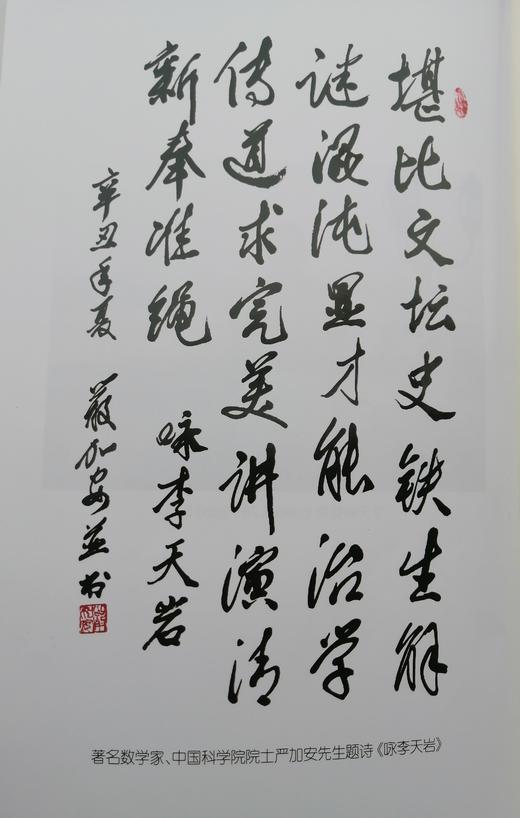 堪比文坛史铁生解
谜混沌显才能治学
传道求完美讲演清
新奉准绳 咏李天岩
辛丑年夏 严加安并书
著名数学家、中国科学院院士严加安先生题诗《咏李天岩》